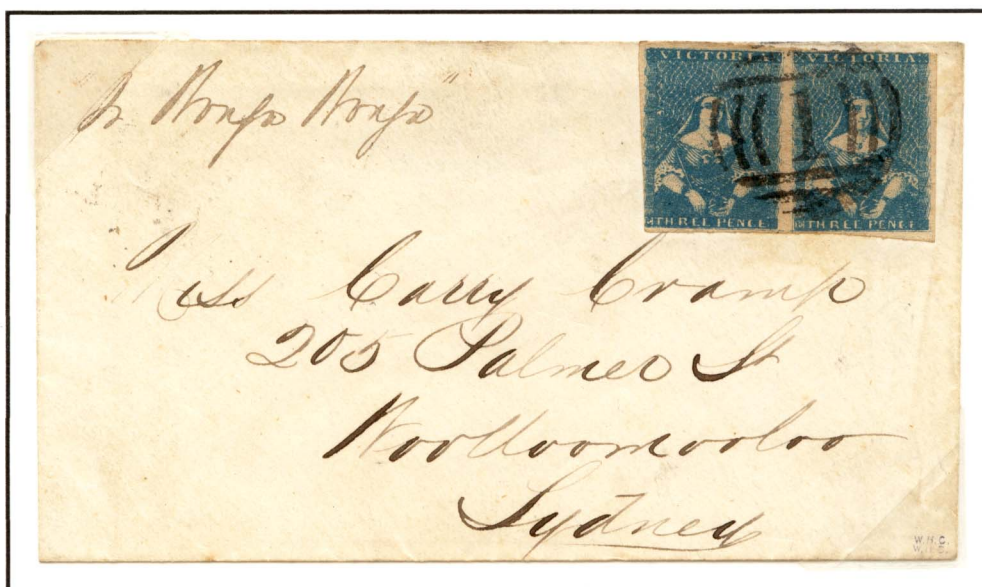 pr Wonga Wonga"
VICTORIA VICTORIA
THREE PENCE THREE PENCE
1
Miss Carry Cramp
205 Palmer St
Woolloomooloo
Sydney
W.H.C.